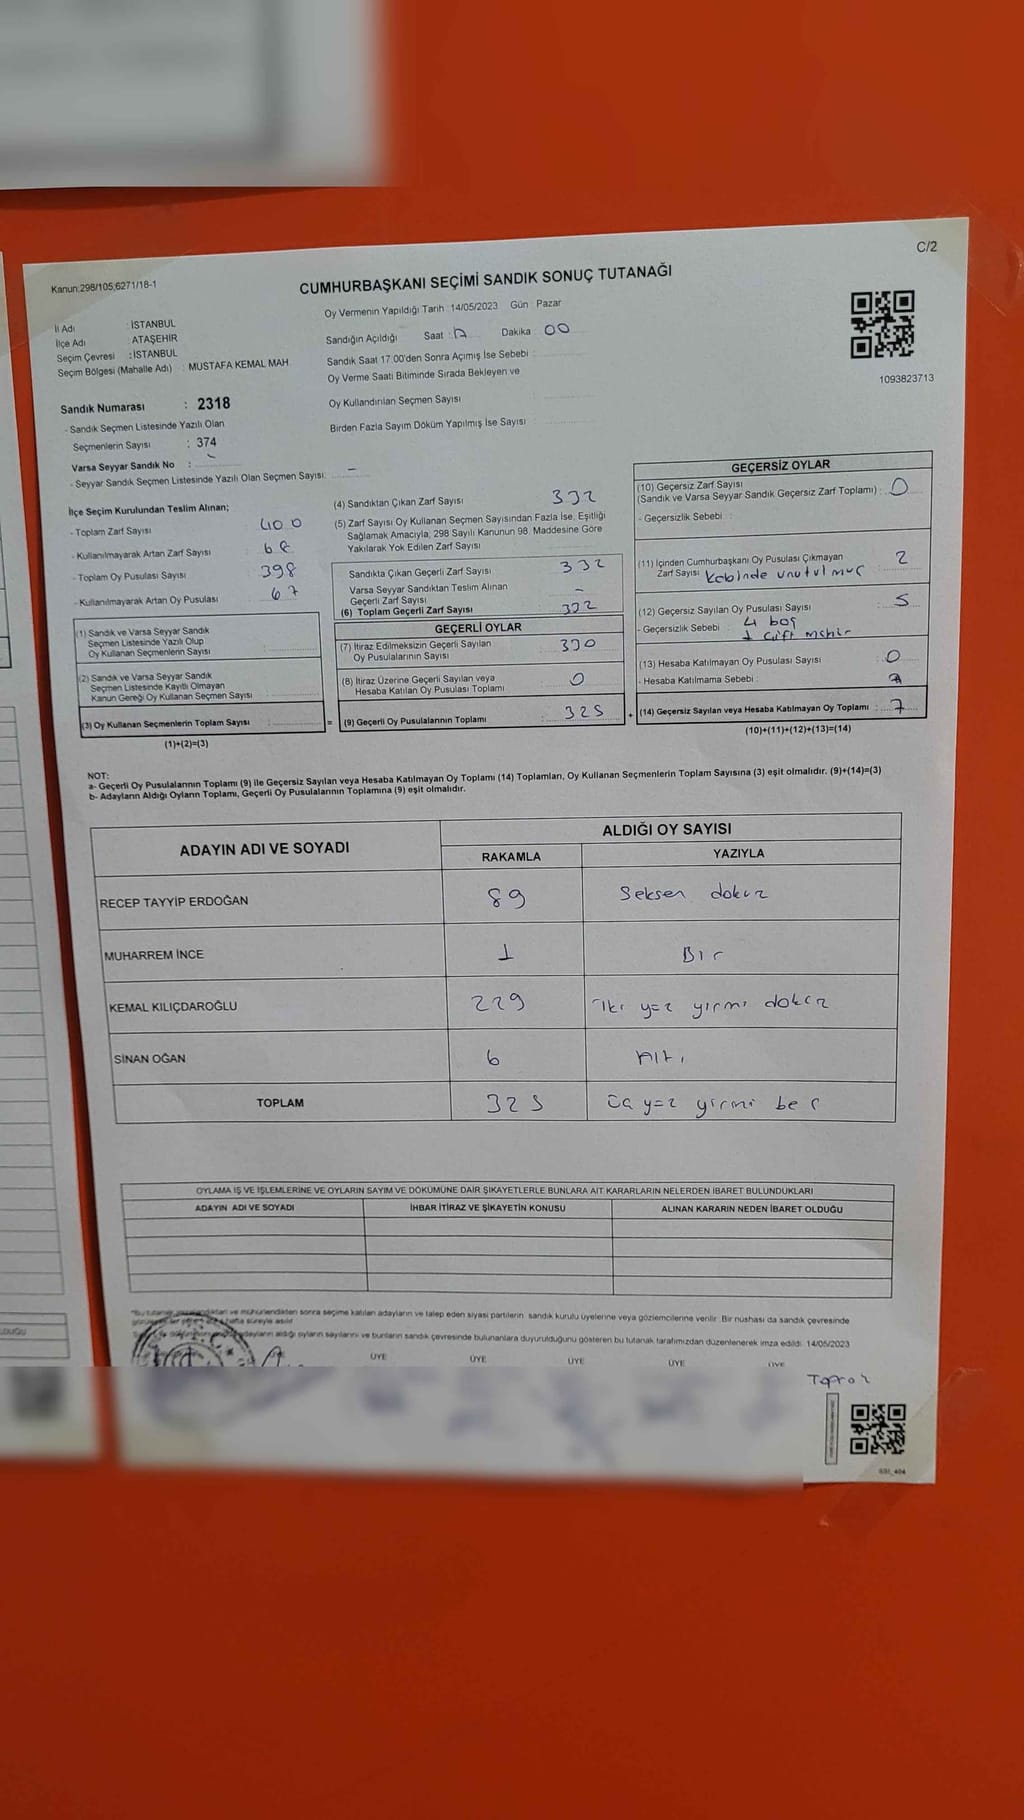 C/2
Kanun:298/105,6271/18-1
CUMHURBAŞKANI SEÇİMİ SANDIK SONUÇ TUTANAĞI
İl Adı : İSTANBUL
İlçe Adı : ATAŞEHİR
Seçim Çevresi : İSTANBUL
Seçim Bölgesi (Mahalle Adı) : MUSTAFA KEMAL MAH
Sandık Numarası : 2318
- Sandık Seçmen Listesinde Yazılı Olan
Seçmenlerin Sayısı : 374
Varsa Seyyar Sandık No : -
- Seyyar Sandık Seçmen Listesinde Yazılı Olan Seçmen Sayısı: -
Oy Vermenin Yapıldığı Tarih 14/05/2023 Gün : Pazar
Sandığın Açıldığı Saat : 17 Dakika : 00
Sandık Saat 17:00'den Sonra Açımış İse Sebebi :
Oy Verme Saati Bitiminde Sırada Bekleyen ve
Oy Kullandırılan Seçmen Sayısı :
Birden Fazla Sayım Döküm Yapılmış İse Sayısı :
1093823713
İlçe Seçim Kurulundan Teslim Alınan;
- Toplam Zarf Sayısı 400
- Kullanılmayarak Artan Zarf Sayısı 68
- Toplam Oy Pusulası Sayısı 398
- Kullanılmayarak Artan Oy Pusulası 67
(1) Sandık ve Varsa Seyyar Sandık
Seçmen Listesinde Yazılı Olup
Oy Kullanan Seçmenlerin Sayısı :
(2) Sandık ve Varsa Seyyar Sandık
Seçmen Listesinde Kayıtlı Olmayan
Kanun Gereği Oy Kullanan Seçmen Sayısı :
(3) Oy Kullanan Seçmenlerin Toplam Sayısı : =
(1)+(2)=(3)
(4) Sandıktan Çıkan Zarf Sayısı 332
(5) Zarf Sayısı Oy Kullanan Seçmen Sayısından Fazla İse, Eşitliği
Sağlamak Amacıyla; 298 Sayılı Kanunun 98. Maddesine Göre
Yakılarak Yok Edilen Zarf Sayısı
Sandıkta Çıkan Geçerli Zarf Sayısı 332
Varsa Seyyar Sandıktan Teslim Alınan
Geçerli Zarf Sayısı -
(6) Toplam Geçerli Zarf Sayısı 332
GEÇERLİ OYLAR
(7) İtiraz Edilmeksizin Geçerli Sayılan
Oy Pusulalarının Sayısı : 330
(8) İtiraz Üzerine Geçerli Sayılan veya
Hesaba Katılan Oy Pusulası Toplamı : 0
(9) Geçerli Oy Pusulalarının Toplamı : 325 +
GEÇERSİZ OYLAR
(10) Geçersiz Zarf Sayısı
(Sandık ve Varsa Seyyar Sandık Geçersiz Zarf Toplamı) : 0
- Geçersizlik Sebebi :
(11) İçinden Cumhurbaşkanı Oy Pusulası Çıkmayan
Zarf Sayısı kabinde unutulmuş 2
(12) Geçersiz Sayılan Oy Pusulası Sayısı : 5
- Geçersizlik Sebebi : 4 boş
1 çift mühür
(13) Hesaba Katılmayan Oy Pusulası Sayısı : 0
- Hesaba Katılmama Sebebi :
(14) Geçersiz Sayılan veya Hesaba Katılmayan Oy Toplamı : 7
(10)+(11)+(12)+(13)=(14)
NOT:
a- Geçerli Oy Pusulalarının Toplamı (9) ile Geçersiz Sayılan veya Hesaba Katılmayan Oy Toplamı (14) Toplamları, Oy Kullanan Seçmenlerin Toplam Sayısına (3) eşit olmalıdır. (9)+(14)=(3)
b- Adayların Aldığı Oyların Toplamı, Geçerli Oy Pusulalarının Toplamına (9) eşit olmalıdır.
ADAYIN ADI VE SOYADI ALDIĞI OY SAYISI
RAKAMLA YAZIYLA
RECEP TAYYİP ERDOĞAN 89 Seksen dokuz
MUHARREM İNCE 1 Bir
KEMAL KILIÇDAROĞLU 229 İki yüz yirmi dokuz
SİNAN OĞAN 6 Altı
TOPLAM 325 Üç yüz yirmi beş
OYLAMA İŞ VE İŞLEMLERİNE VE OYLARIN SAYIM VE DÖKÜMÜNE DAİR ŞİKAYETLERLE BUNLARA AİT KARARLARIN NELERDEN İBARET BULUNDUKLARI
ADAYIN ADI VE SOYADI İHBAR İTİRAZ VE ŞİKAYETİN KONUSU ALINAN KARARIN NEDEN İBARET OLDUĞU
ve mühürlendikten sonra seçime katılan adayların ve talep eden siyasi partilerin sandık kurulu üyelerine veya gözlemcilerine verilir. Bir nüshası da sandık çevresinde
hafta süreyle asılır
adayların aldığı oyların sayılarını ve bunların sandık çevresinde bulunanlara duyurulduğunu gösteren bu tutanak tarafımızdan düzenlenerek imza edildi. 14/05/2023
ÜYE ÜYE ÜYE ÜYE ÜYE